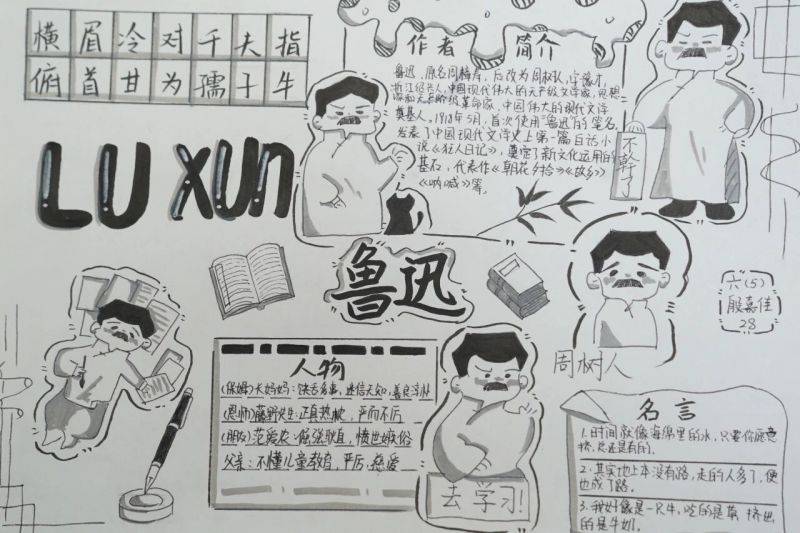 横眉冷对千夫指
俯首甘为孺子牛
LU XUN
作者简介
鲁迅，原名周樟寿，后改为周树人，字豫才，
浙江绍兴人，中国现代伟大的无产级文学家，思想
家和无产阶级革命家，中国伟大的现代文学
奠基人。1918年5月，首次使用“鲁迅”的笔名，
发表了中国现代文学史上第一篇白话小
说《狂人日记》，奠定了新文化运用的
基石，代表作《朝花夕拾》《故乡》
《呐喊》等。
不干了
鲁迅
周树人
六（5）
殷嘉佳
28
人物
（保姆）长妈妈：饶舌多事，迷信无知，善良淳朴
（恩师）藤野先生：正直热忱，严而不厉
（朋友）范爱农：倔强耿直，愤世嫉俗
父亲：不懂儿童教育，严厉，慈爱
去学习！
名言
1.时间就像海绵里的水，只要你愿意
挤，总还是有的。
2.其实地上本没有路，走的人多了，便
也成了路。
3.我好像是一只牛，吃的是草，挤出
的是牛奶。